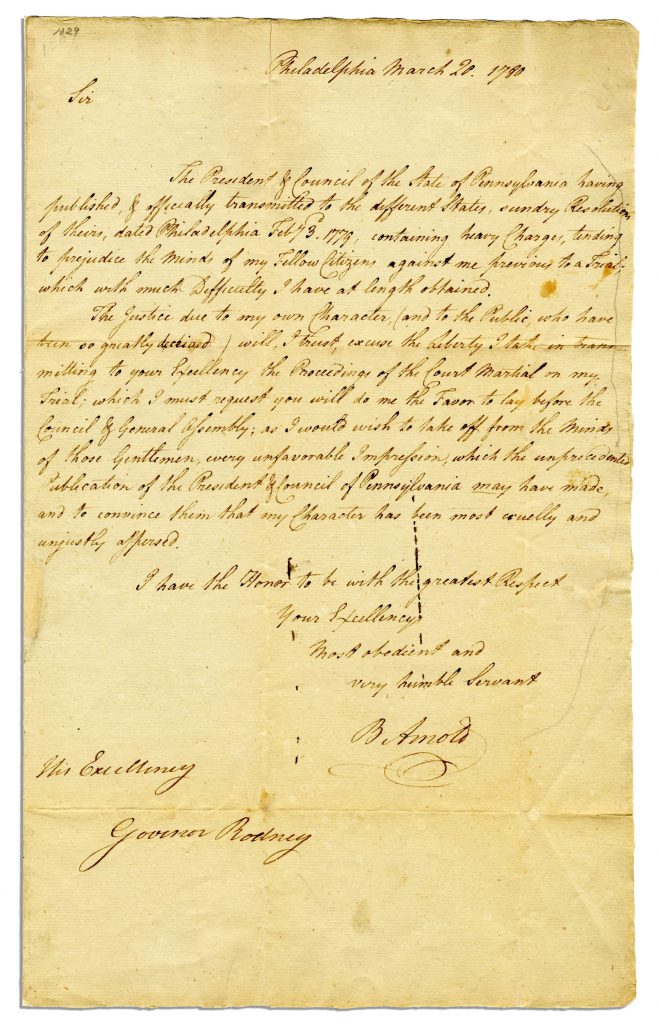 1029
Philadelphia March 20. 1780
Sir
The President & Council of the State of Pennsylvania having
published, & officially transmitted to the different States, sundry Resolutions
of theirs, dated Philadelphia Feby 3. 1779, containing heavy Charges, tending
to prejudice the Minds of my Fellow Citizens against me previous to a Trial;
which with much Difficulty I have at length obtained.
The Justice due to my own Character, (and to the Public, who have
been so greatly deceived) will, I trust, excuse the Liberty I take in trans-
mitting to your Excellency the Proceedings of the Court Martial on my
Trial; which I must request you will do me the Favor to lay before the
Council & General Assembly; as I would wish to take off from the Minds
of those Gentlemen, every unfavorable Impression, which the unprecedented
Publication of the President & Council of Pennsylvania may have made,
and to convince them that my Character has been most cruelly and
unjustly aspersed.
I have the Honor to be with the greatest Respect
Your Excellency
Most obedient and
very humble Servant
B Arnold
His Excellency
Govenor Rodney